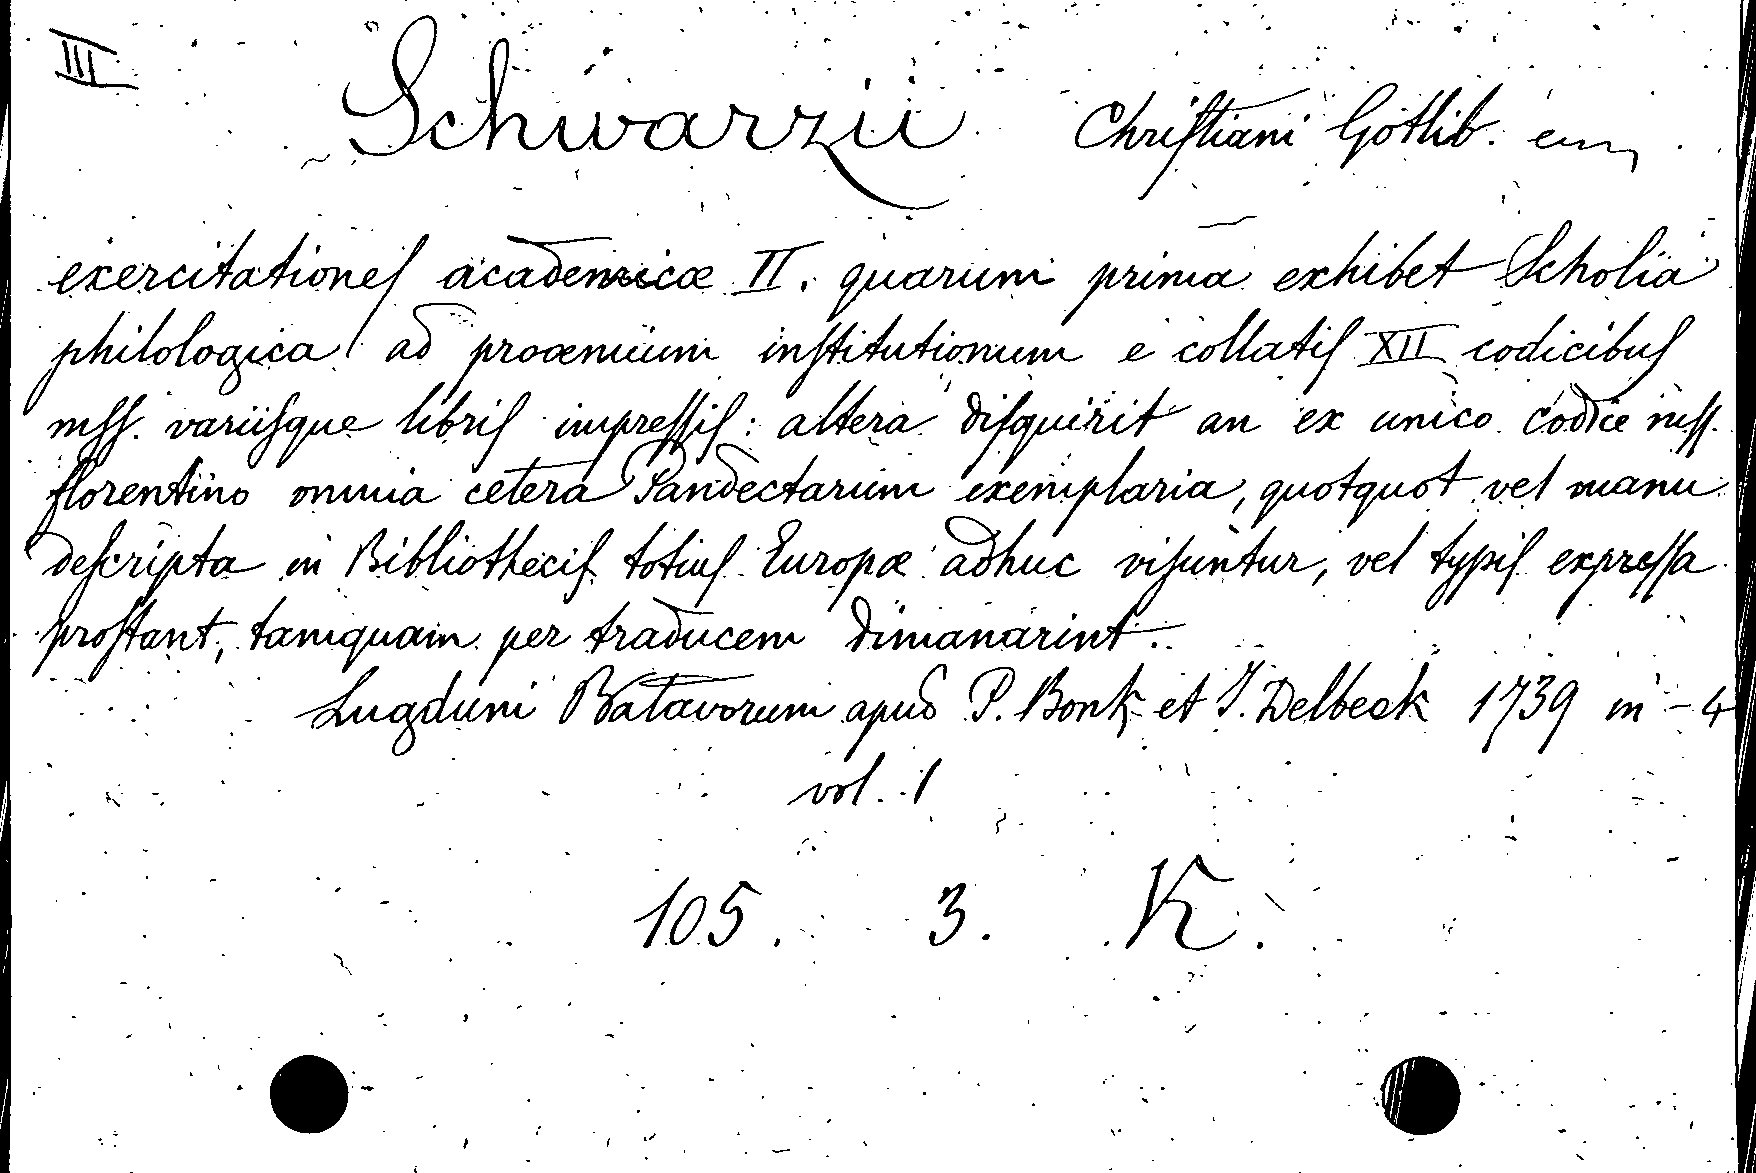 III
Schwarzii Christiani Gottlib.
exercitationes academicæ II. quarum prima exhibet Scholia
philologica ad proœmium institutionum e collatis XII codicibus
mss. variisque libris impressis: altera disquirit an ex unico codice mss.
florentino omnia cetera Pandectarum exemplaria, quotquot vel manu
descripta in Bibliothecis totius Europæ adhuc visuntur, vel typis expressa
prostant, tamquam per traducem dimanarint.
Lugduni Batavorum apud P. Bonk et I. Delbeek 1739 in - 4
vol. 1
105. 3. K.